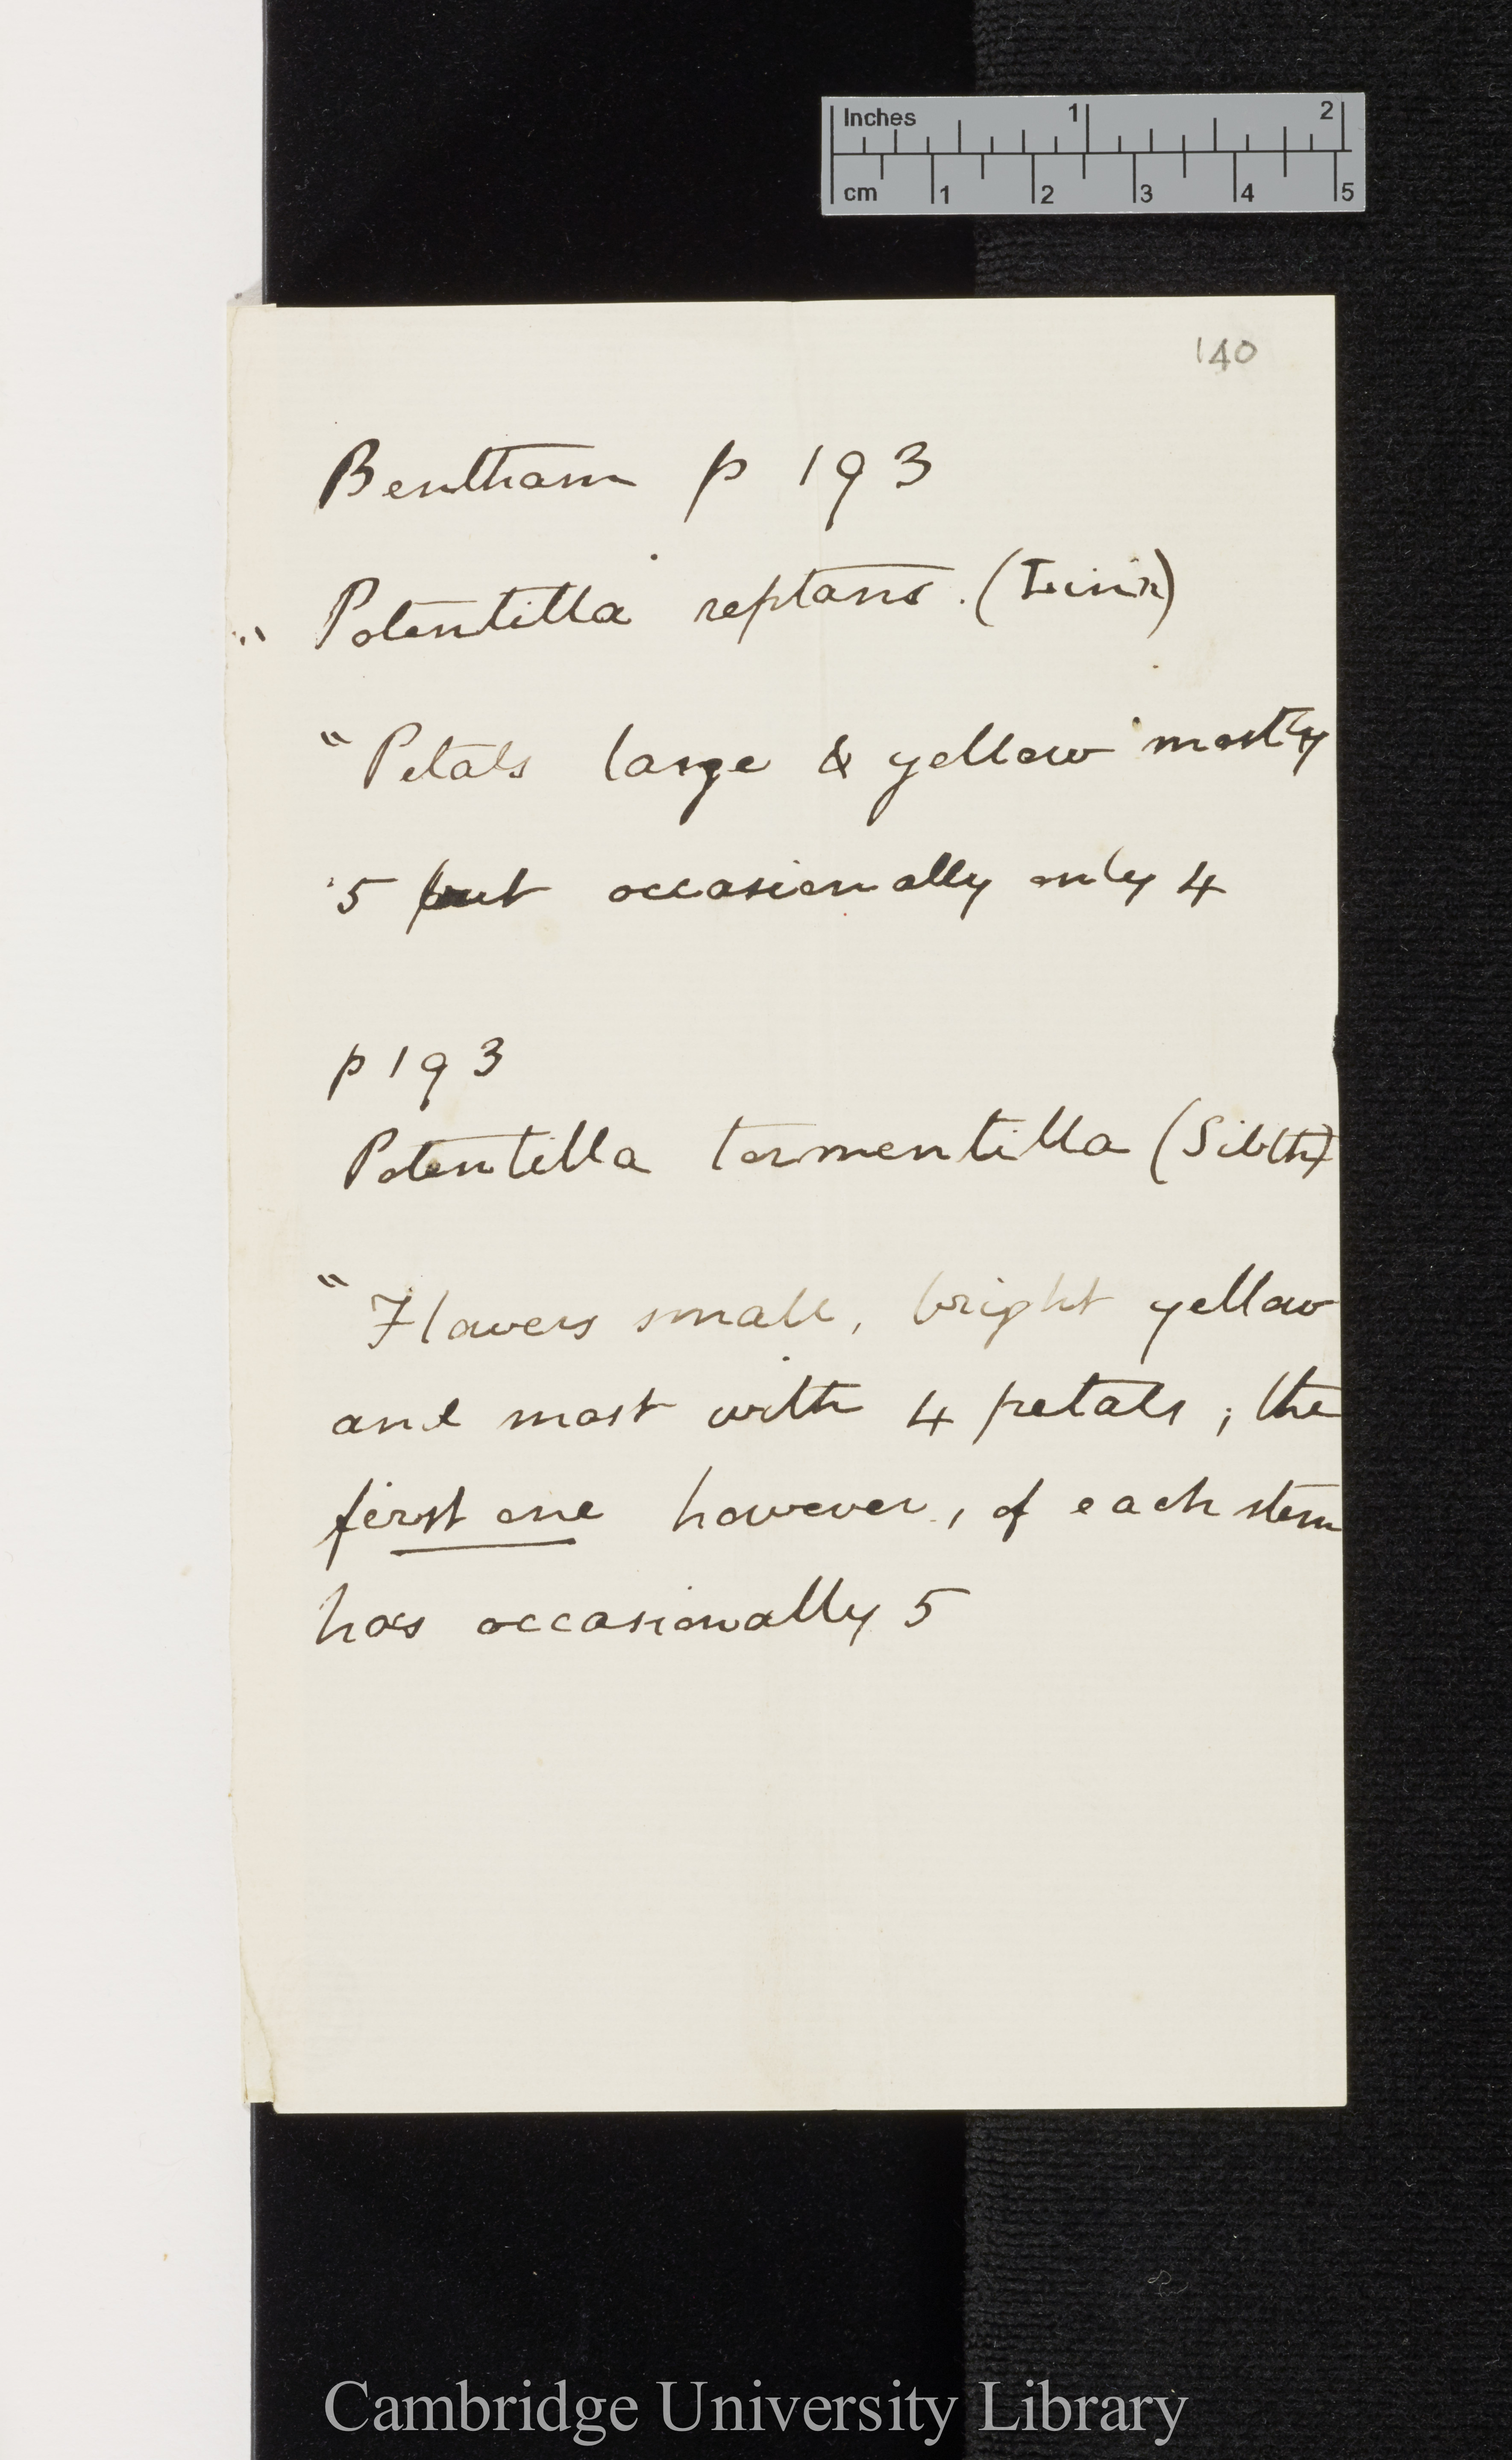 Inches 1 2
cm 1 2 3 4 5
140
Bentham p 193
" Potentilla reptans. (Linn)
"Petals large & yellow mostly
5 but occasionally only 4
p 193
Potentilla tormentilla (Sibth)
"Flowers small, bright yellow
and most with 4 petals; the
first one however, of each stem
has occasionally 5
Cambridge University Library